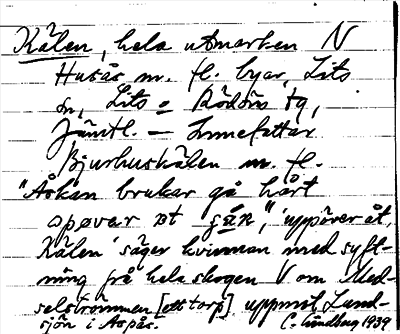 Kälen, hela utmarken N
Husås m. fl. byar, Lits
sn, Lits o Rödöns tg,
Jämtl. — Innefattar
Bjurhuskälen m. fl.
"Åskan brukar gå hårt
opøvar et
"uppöver åt
Kälen" säger kvinnan med syft-
ning på hela skogen V om
[ett torp] uppmot Land-
sjön i Aspås. C. Lundberg 1939